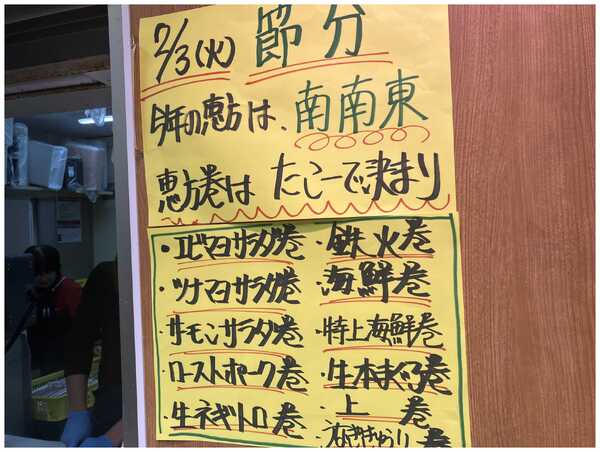 2/3(火) 節分
今年の恵方は、南南東
恵方巻は たこーで決まり
・エビマヨサラダ巻
・ツナマヨサラダ巻
・サーモンサラダ巻
・ローストポーク巻
・生ネギトロ巻
・鉄火巻
・海鮮巻
・特上海鮮巻
・生本まぐろ巻
・上 巻
・うなぎきゅうり巻